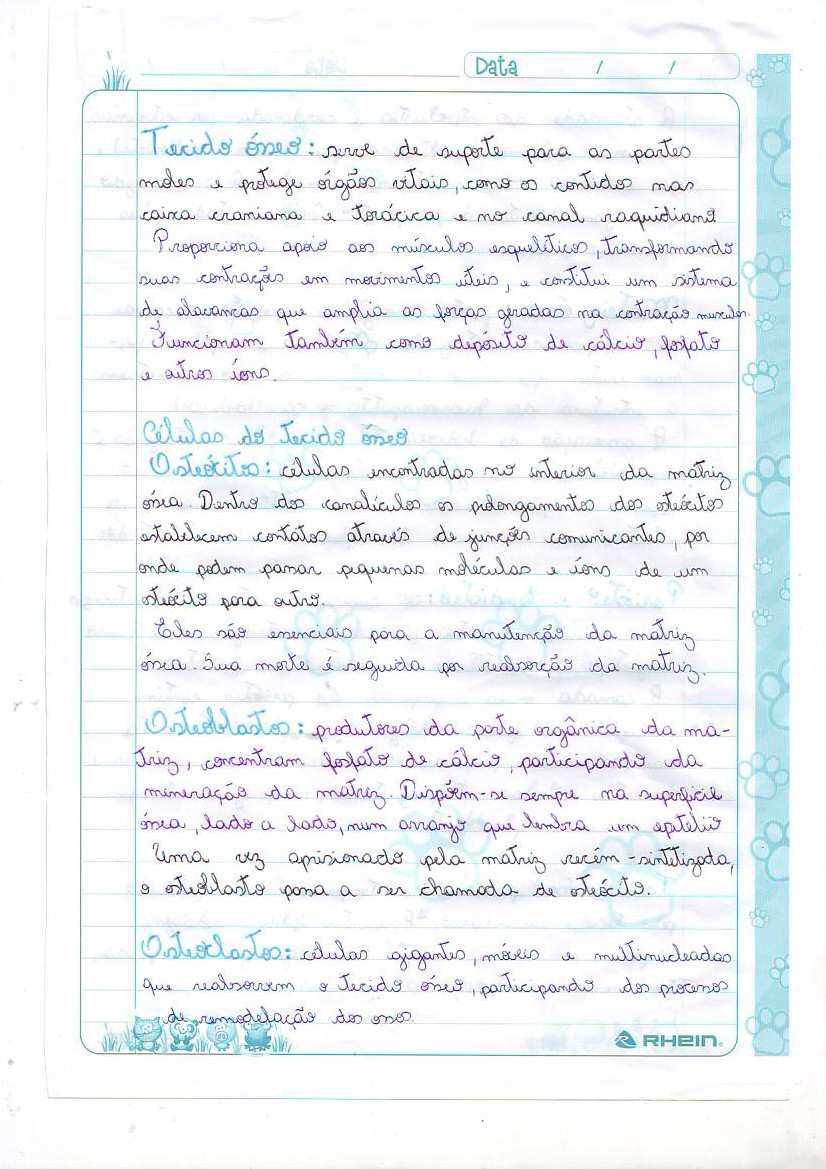 Data / /
Tecido ósseo: serve de suporte para as partes
moles e protege órgãos vitais, como os contidos nas
caixa craniana e torácica e no canal raquidiano
Proporciona apoio aos músculos esqueléticos, transformando
suas contrações em movimentos úteis, e constitui um sistema
de alavancas que amplia as forças geradas na contração muscular.
Funcionam também como depósito de cálcio, fosfato
e outros íons.
Células do tecido ósseo
Osteócitos: células encontradas no interior da matriz
óssea. Dentro dos canalículos os prolongamentos dos osteócitos
estabelecem contatos através de junções comunicantes, por
onde podem passar pequenas moléculas e íons de um
osteócito para outro.
Eles são essenciais para a manutenção da matriz
óssea. Sua morte é seguida por reabsorção da matriz.
Osteoblastos: produtores da parte orgânica da ma-
triz, concentram fosfato de cálcio, participando da
mineração da matriz. Dispõem-se sempre na superfície
óssea, lado a lado, num arranjo que lembra um epitélio
Uma vez aprisionado pela matriz recém-sintetizada,
o osteoblasto passa a ser chamada de osteócito.
Osteoclastos: células gigantes, móveis e multinucleadas
que reabsorvem o tecido ósseo, participando dos processos
de remodelação dos ossos.
RHEIN